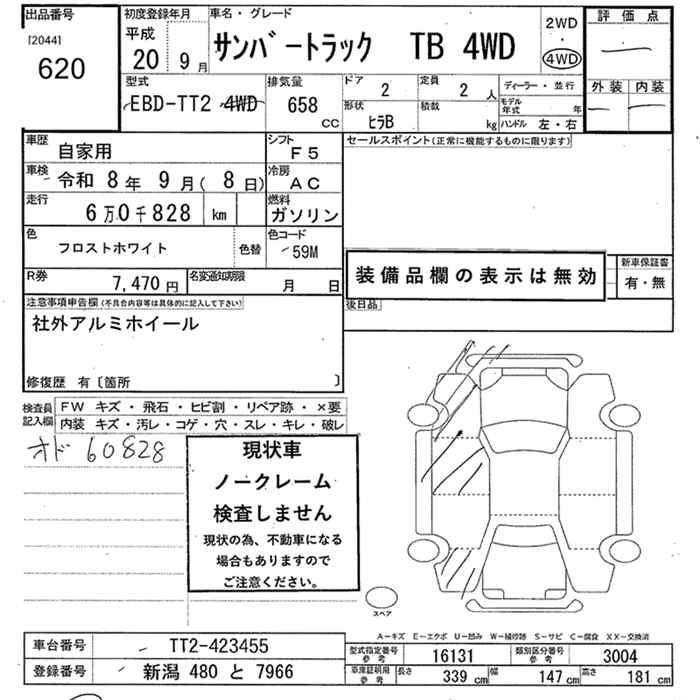 出品番号
[2044]
620
初度登録年月
平成
20 9 月
車名・グレード
サンバートラック TB 4WD
2WD
・
4WD
評価点
外装 内装
型式
EBD-TT2 4WD
排気量
658
CC
ドア
2
定員
2 人
ディーラー・並行
形状
ヒラB
積載
kg
モデル年式 年
ハンドル 左・右
車歴
自家用
シフト
F5
セールスポイント(正常に機能するものに限ります)
車検
令和 8年 9月( 8日)
冷房
AC
走行
6万0千828 km
燃料
ガソリン
色
フロストホワイト
色替
色コード
59M
装備品欄の表示は無効
新車保証書
有・無
R券
7,470 円
名変通知期限
月 日
後日品
注意事項申告欄(不具合内容等は具体的に記入して下さい)
社外アルミホイール
修復歴 有〔箇所 〕
検査員記入欄
FW キズ・飛石・ヒビ割・リペア跡・×要
内装 キズ・汚レ・コゲ・穴・スレ・キレ・破レ
オド 60828
現状車
ノークレーム
検査しません
現状の為、不動車になる
場合もありますので
ご注意ください。
スペア
A－キズ E－エクボ U－凹み W－補修跡 S－サビ C－腐食 XX－交換済
車台番号
TT2-423455
型式指定番号参考
16131
類別区分番号参考
3004
登録番号
新潟 480 と 7966
車庫証明用参考
長さ 339 cm 幅 147 cm 高さ 181 cm